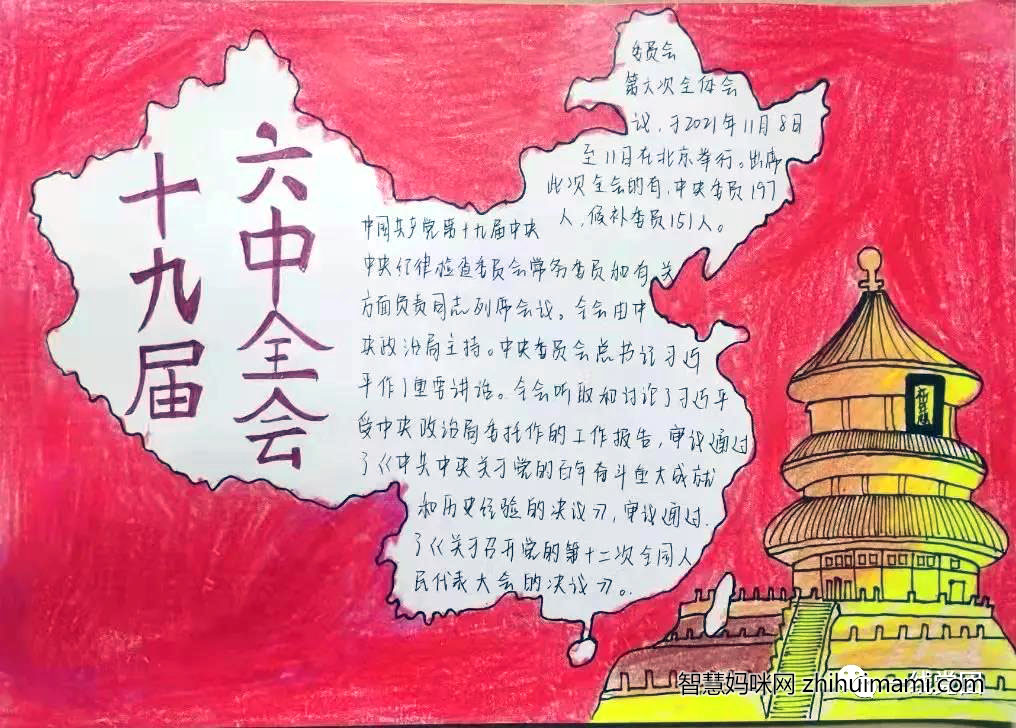 十九届
六中全会
委员会
第六次全体会
议，于2021年11月8日
至11日在北京举行。出席
此次全会的有，中央委员197
人，候补委员151人。
中国共产党第十九届中央
中央纪律检查委员会常务委员和有关
方面负责同志列席会议。全会由中
央政治局主持。中央委员会总书记习近
平作了重要讲话。全会听取和讨论了习近平
受中央政治局委托作的工作报告，审议通过
了《中共中央关于党的百年奋斗重大成就
和历史经验的决议》，审议通过
了《关于召开党的第十二次全国人
民代表大会的决议》。
智慧妈咪网 zhihuimami.com